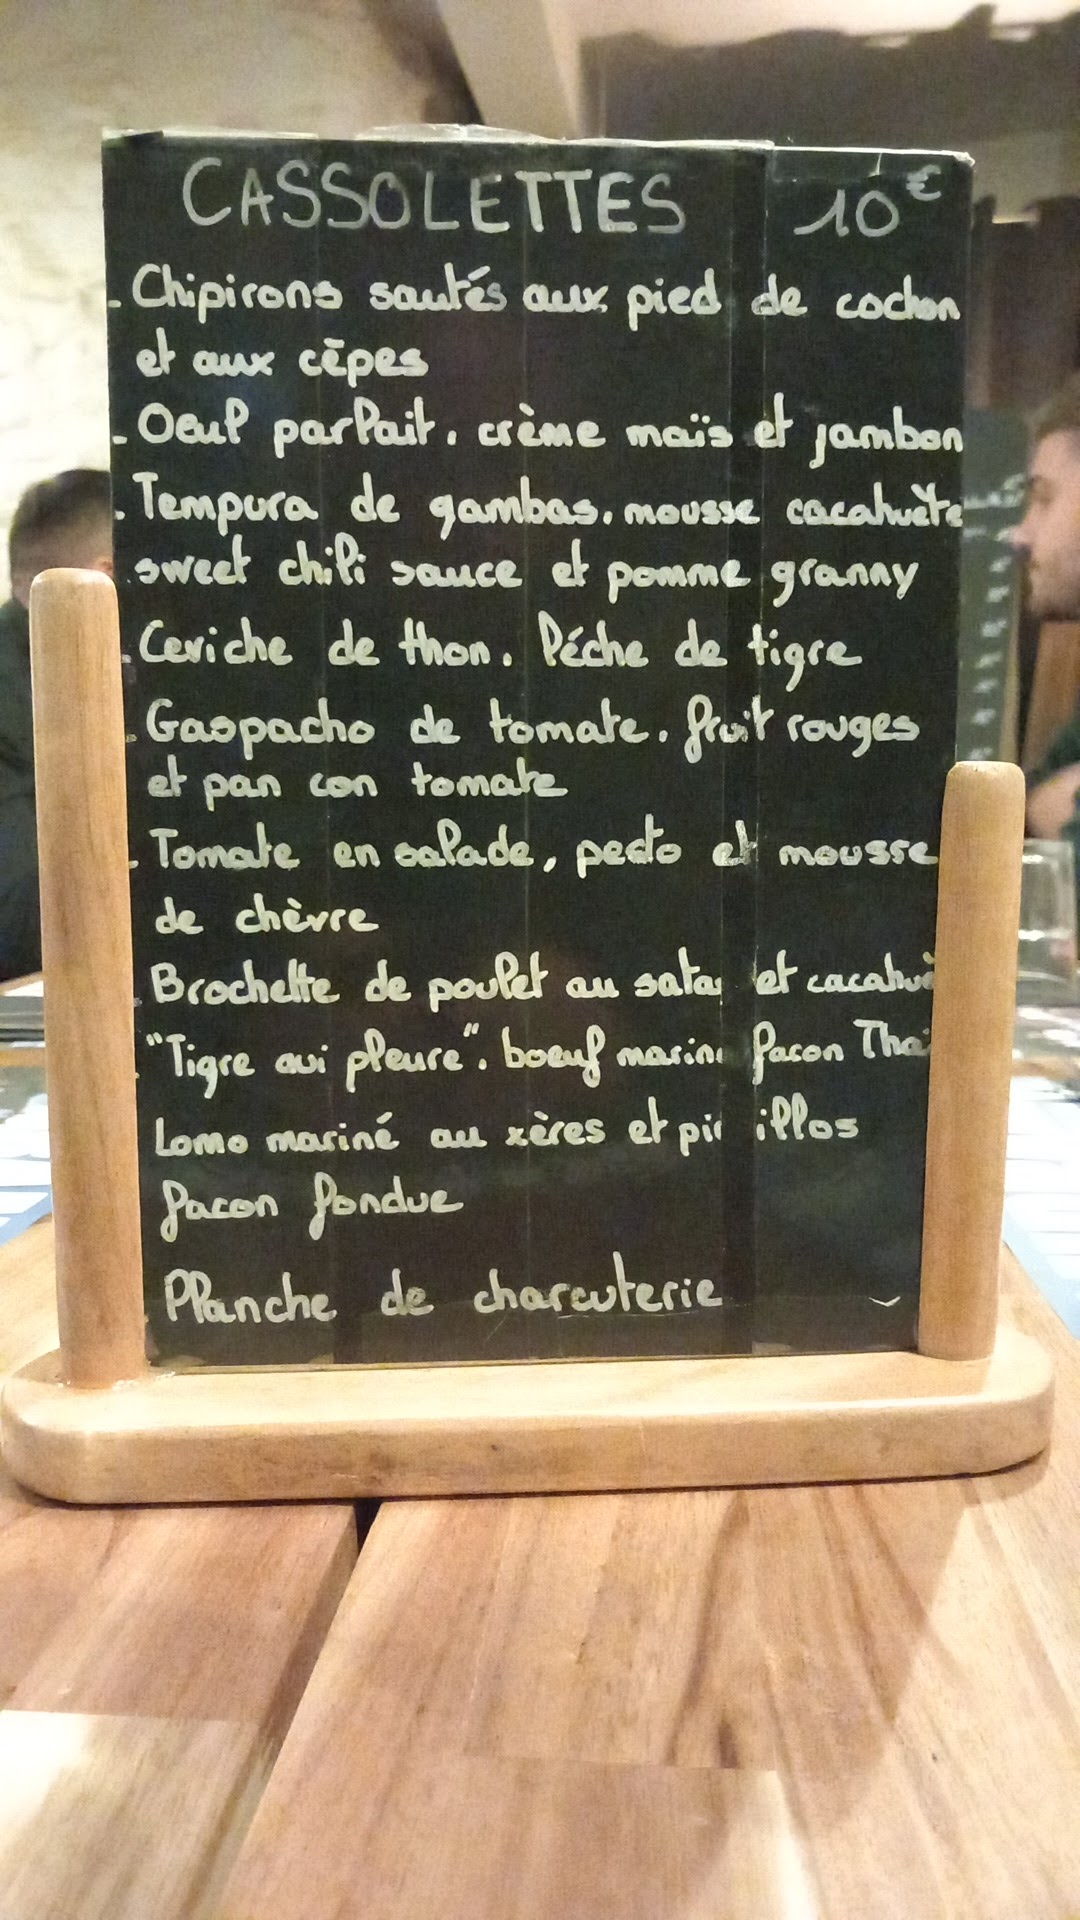 CASSOLETTES 10€
- Chipirons sautés aux pied de cochon
et aux cêpes
- Oeuf parfait. crème maïs et jambon
. Tempura de gambas. mousse cacahuète
sweet chili sauce et pomme granny
. Ceviche de thon. Péche de tigre
. Gaspacho de tomate. fruit rouges
et pan con tomate
. Tomate en salade, pesto et mousse
de chèvre
. Brochette de poulet au satay et cacahuè
. "Tigre qui pleure". boeuf mariné facon Thaï
Lomo mariné au xères et piquillos
facon fondue
. Planche de charcuterie